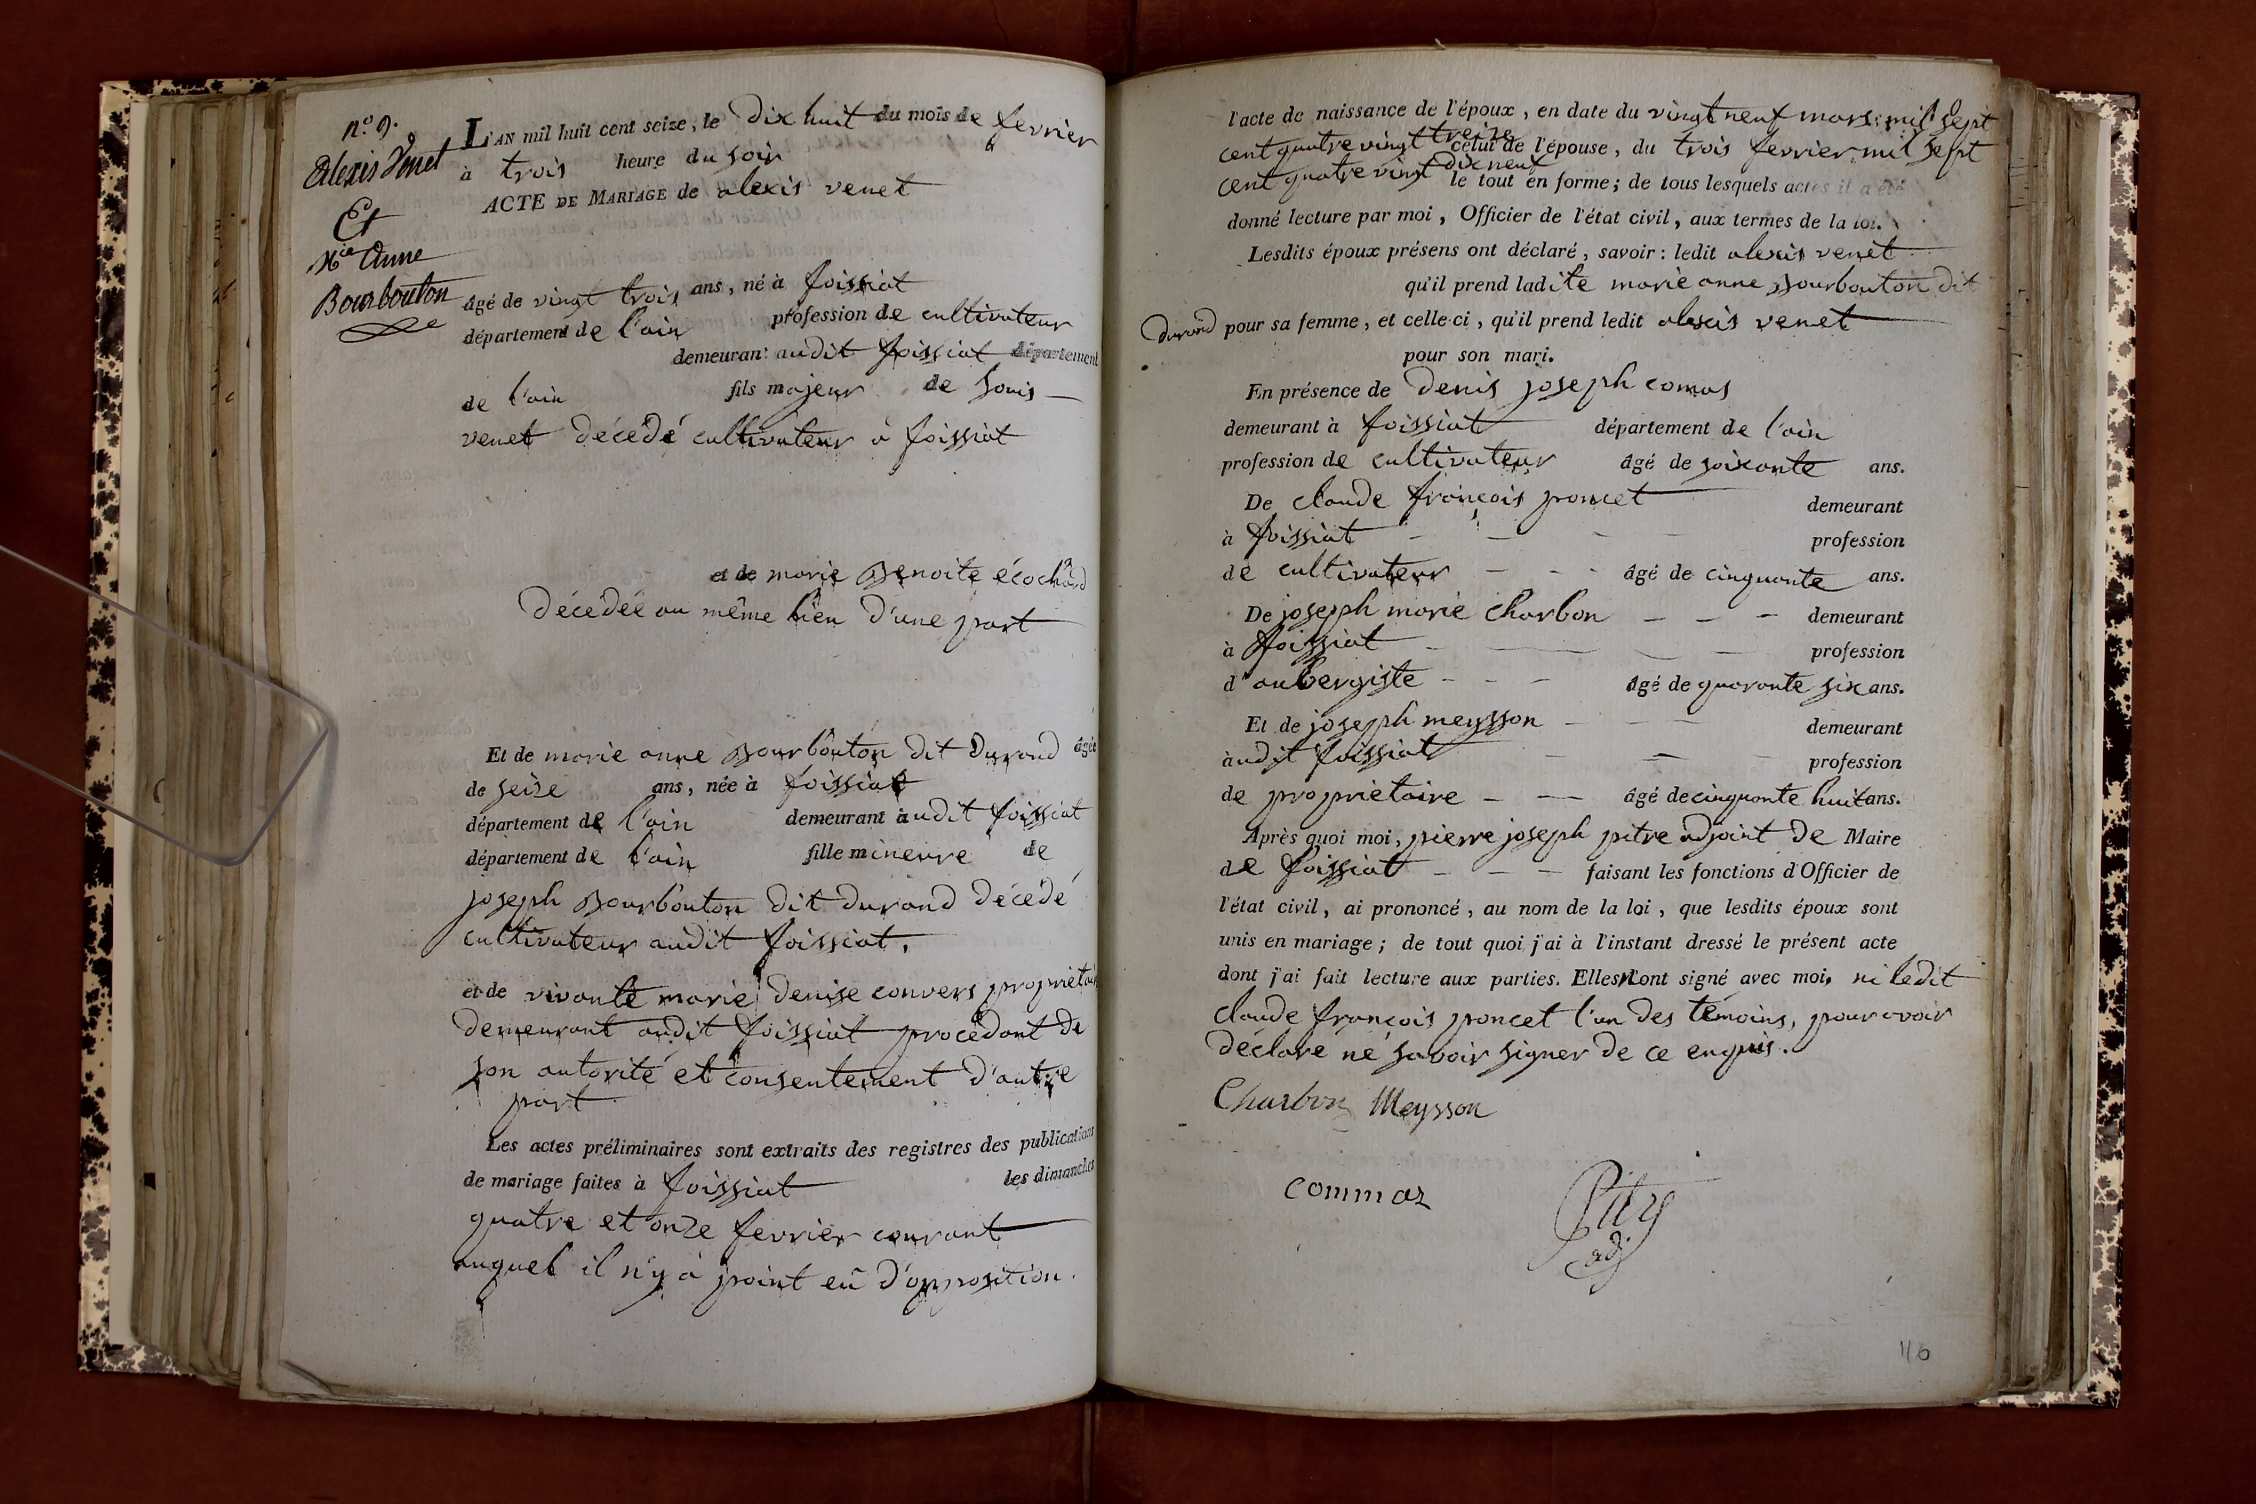 n.º 9.
Alexis Venet
Et
M.ie Anne
Bourbouton
L'AN mil huit cent seize, le dix huit du mois de fevrier
à trois heure du soir
ACTE DE MARIAGE de alexis venet
âgé de vingt trois ans, né à foissiat
département de l'ain profession de cultivateur
demeurant audit foissiat département
de l'ain fils majeur de
venet décédé cultivateur à foissiat
et de marie Benoite écochard
décédée au même lieu d'une part
Et de marie anne Bourbouton dit Durand âgée
de seize ans, née à foissiat
département de l'ain demeurant audit foissiat
département de l'ain fille mineure de
joseph Bourbouton dit durand décédé
cultivateur audit foissiat,
et de vivante marie denise convers propriétaire
demeurant audit foissiat procédant de
son autorité et consentement d'autre
part
Les actes préliminaires sont extraits des registres des publications
de mariage faites à foissiat les dimanches
quatre et onze fevrier courant
auquel il n'y à point eü d'opposition.
l'acte de naissance de l'époux, en date du vingt neuf mars mil sept
cent quatre vingt treize celui de l'épouse, du trois fevrier mil sept
cent quatre vingt dix neuf le tout en forme; de tous lesquels actes il a été
donné lecture par moi, Officier de l'état civil, aux termes de la loi.
Lesdits époux présens ont déclaré, savoir: ledit alexis venet
qu'il prend ladite marie anne Bourbouton dit
durand pour sa femme, et celle-ci, qu'il prend ledit alexis venet
pour son mari.
En présence de denis joseph comas
demeurant à foissiat département de l'ain
profession de cultivateur âgé de soixante ans.
De claude françois poncet demeurant
à foissiat profession
de cultivateur âgé de cinquante ans.
De joseph marie charbon demeurant
à foissiat profession
d'aubergiste âgé de quarante six ans.
Et de joseph meysson demeurant
àudit foissiat profession
de propriétaire âgé de cinquante huit ans.
Après quoi moi, pierre joseph pitre adjoint de Maire
de foissiat faisant les fonctions d'Officier de
l'état civil, ai prononcé, au nom de la loi, que lesdits époux sont
unis en mariage; de tout quoi j'ai à l'instant dressé le présent acte
dont j'ai fait lecture aux parties. Elles n'ont signé avec moi, ni ledit
claude françois poncet l'un des témoins, pour avoir
déclaré ne savoir signer de ce enquis.
Charbon Meysson
commaz
adj
116